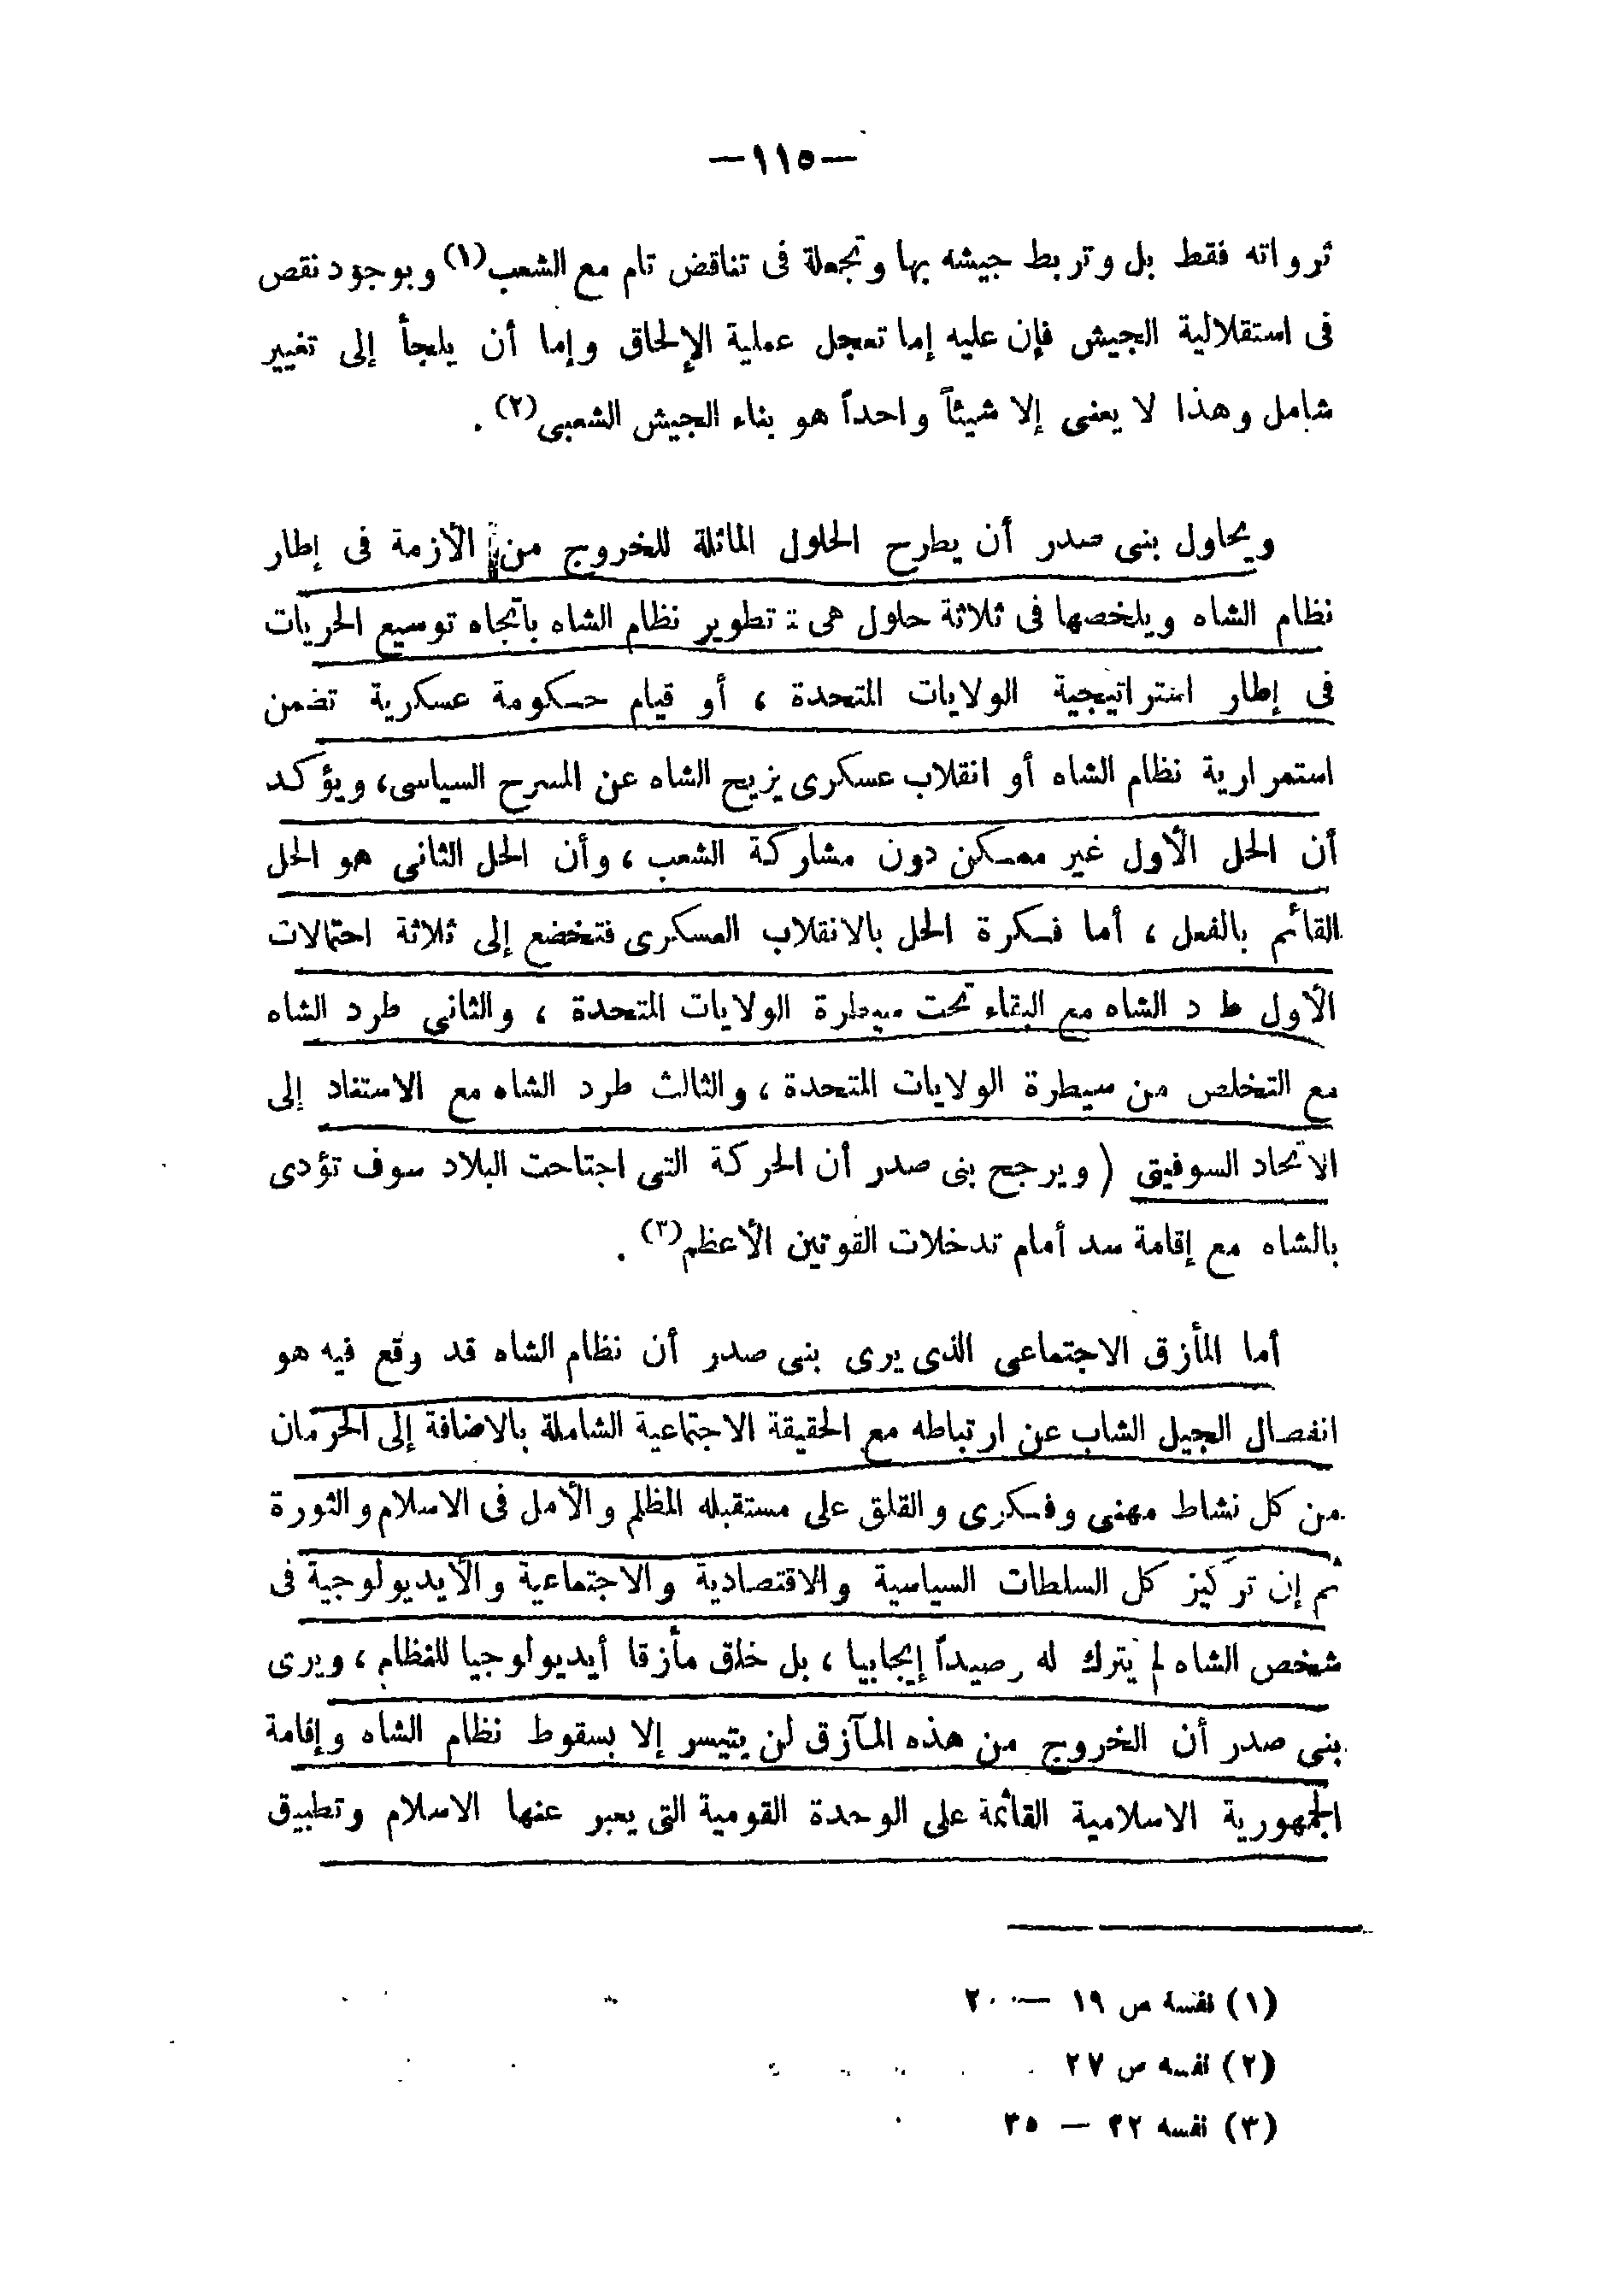 —١١٥—
ثرواته فقط بل وتربط جيشه بها وتجعلة فى تناقض تام مع الشعب(١) وبوجود نقص
فى استقلالية الجيش فإن عليه إما تعجل عملية الإلحاق وإما أن يلجأ إلى تغيير
شامل وهذا لا يعنى إلا شيئاً واحداً هو بناء الجيش الشعبى(٢) .
ويحاول بنى صدر أن يطرح الحلول الماثلة للخروج من الأزمة فى إطار
نظام الشاه ويلخصها فى ثلاثة حلول هى : تطوير نظام الشاه باتجاه توسيع الحريات
فى إطار استراتيجية الولايات المتحدة ، أو قيام حكومة عسكرية تضمن
استمرارية نظام الشاه أو انقلاب عسكرى يزيح الشاه عن المسرح السياسى، ويؤكد
أن الحل الأول غير ممكن دون مشاركة الشعب ، وأن الحل الثانى هو الحل
القائم بالفعل ، أما فكرة الحل بالانقلاب العسكرى فتخضع إلى ثلاثة احتمالات
الأول ط د الشاه مع البقاء تحت سيطرة الولايات المتحدة ، والثانى طرد الشاه
مع التخلص من سيطرة الولايات المتحدة ، والثالث طرد الشاه مع الاستناد إلى
الاتحاد السوفيتى ( ويرجح بنى صدر أن الحركة التى اجتاحت البلاد سوف تؤدى
بالشاه مع إقامة سد أمام تدخلات القوتين الأعظم(٣) .
أما المأزق الاجتماعى الذى يرى بنى صدر أن نظام الشاه قد وقع فيه هو
انفصال الجيل الشاب عن ارتباطه مع الحقيقة الاجتماعية الشاملة بالاضافة إلى الحرمان
من كل نشاط مهنى وفكرى والقلق على مستقبله المظلم والأمل فى الاسلام والثورة
ثم إن تركيز كل السلطات السياسية والاقتصادية والاجتماعية والأيديولوجية فى
شخص الشاه لم يترك له رصيداً إيجابيا ، بل خلق مأزقا أيديولوجيا للنظام ، ويرى
بنى صدر أن الخروج من هذه المآزق لن يتيسر إلا بسقوط نظام الشاه وإقامة
الجمهورية الاسلامية القائمة على الوحدة القومية التى يعبر عنها الاسلام وتطبيق
(١) نفسة ص ١٩ — ٢٠
(٢) نفسه ص ٢٧
(٣) نفسه ٣٢ — ٣٥